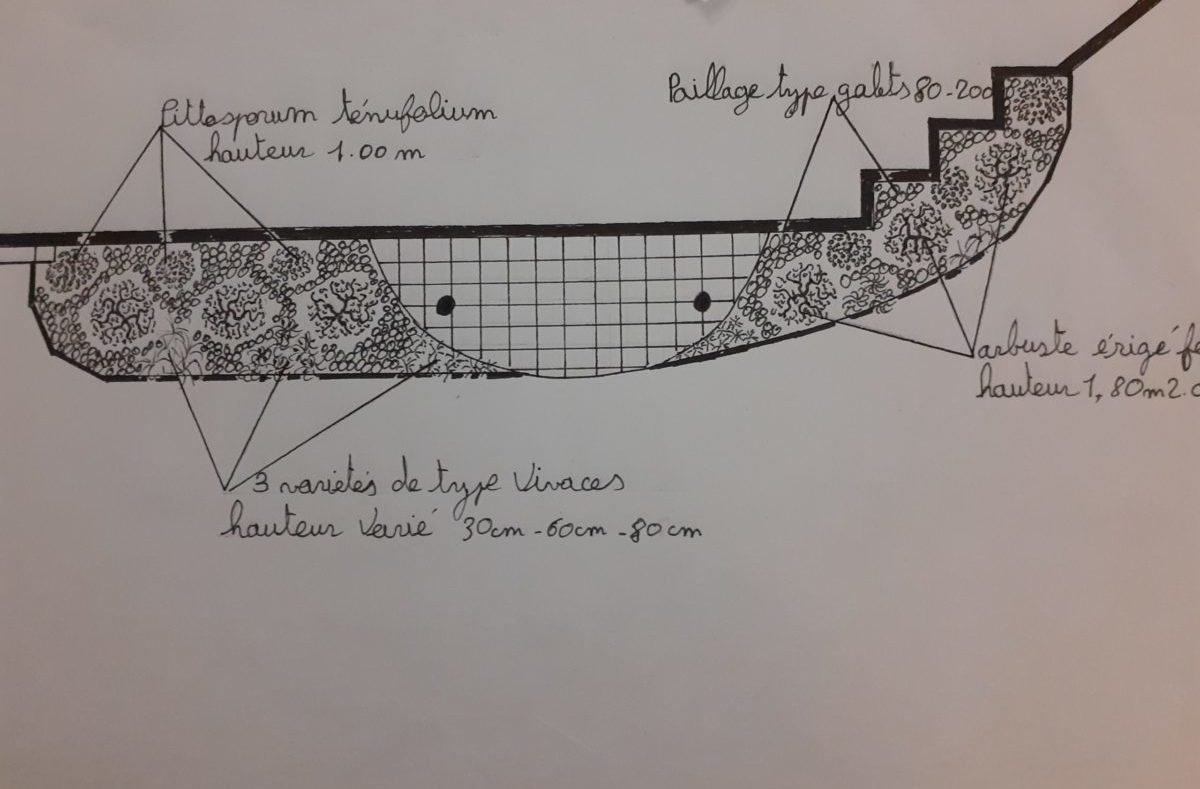 Pittosporum ténufolium
hauteur 1.00 m
Paillage type galets 80-200
arbuste érigé
hauteur 1,80m
3 variétés de type Vivaces
hauteur Varié 30cm-60cm-80cm